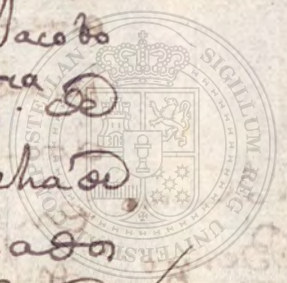 Jacobo
ra de
ha de
ados
SIGILLUM REG UNIVERSIT COMPOSTELLAN